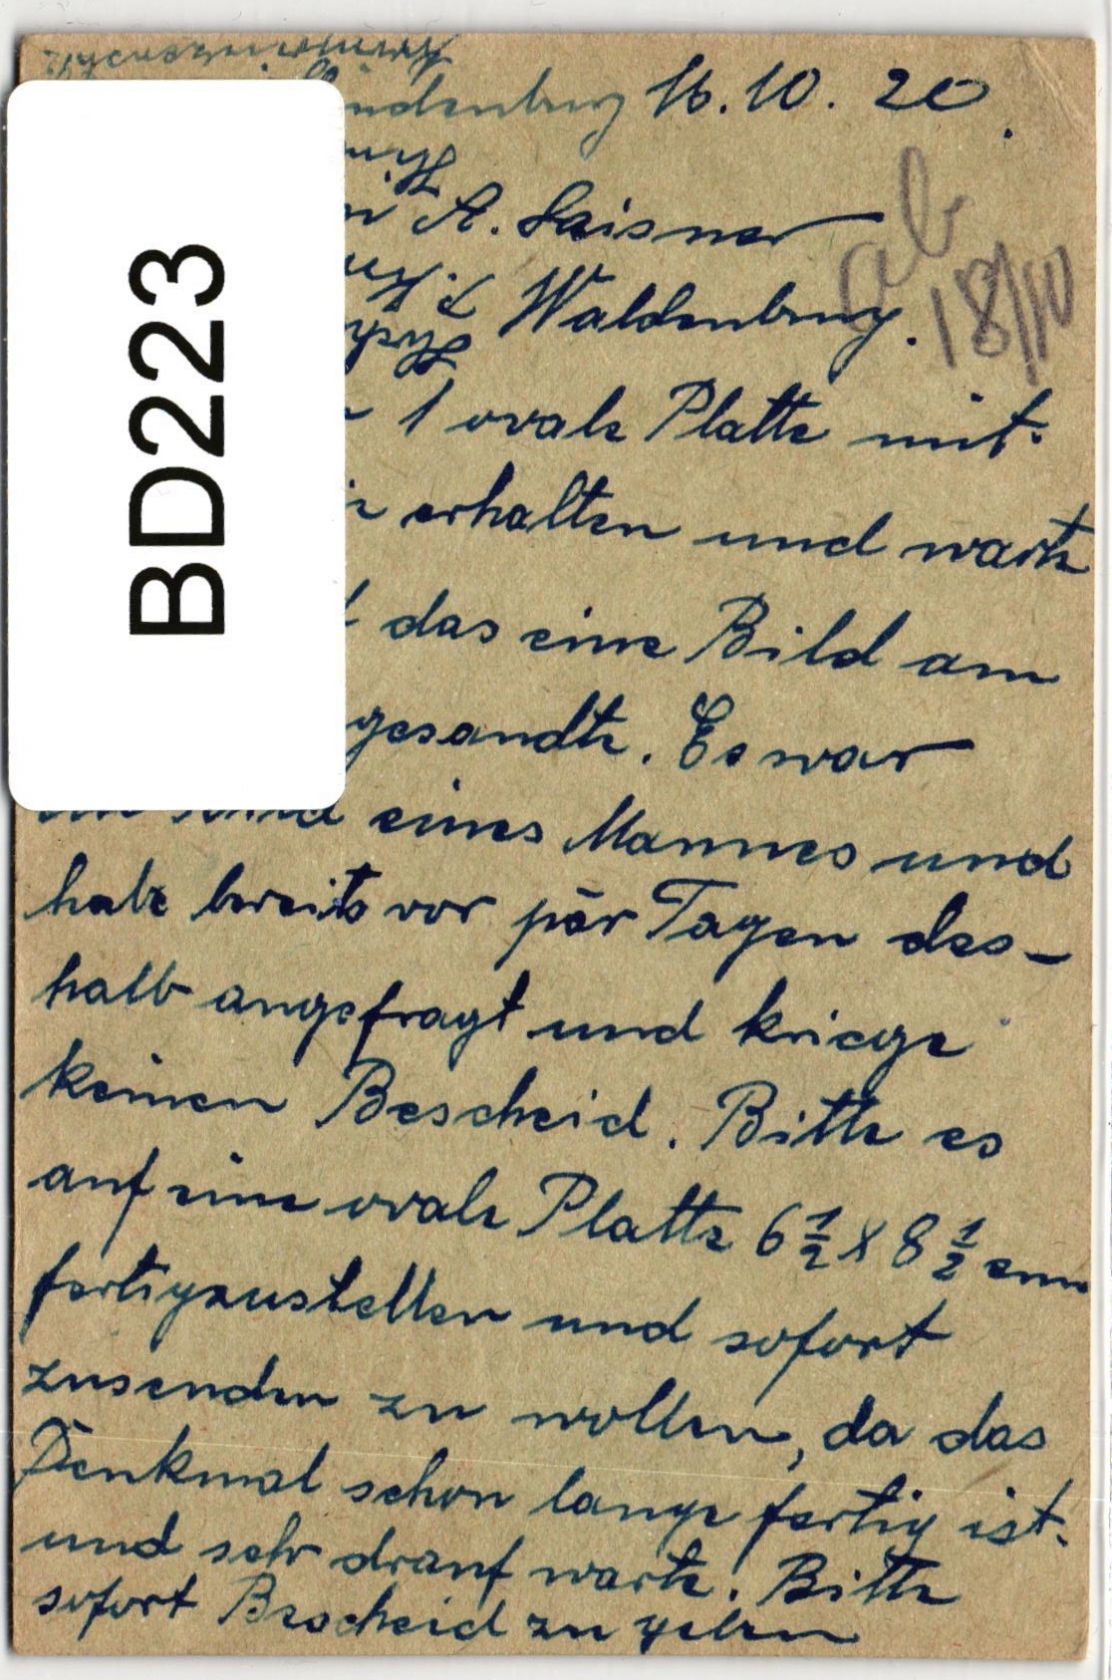 16.10.20.
A. Leisner
Waldenburg.
ab
18/10
1 ovale Platte mit
erhalten und warte
das eine Bild am
gesandte. Es war
eines Mannes und
habe bereits vor pār Tagen des-
halb angefragt und kriege
keinen Bescheid. Bitte es
auf eine ovale Platte 6½ x 8½ cm
fertigzustellen und sofort
zusenden zu wollen, da das
Denkmal schon lange fertig ist.
und sehr drauf warte. Bitte
sofort Bescheid zu geben
BD223